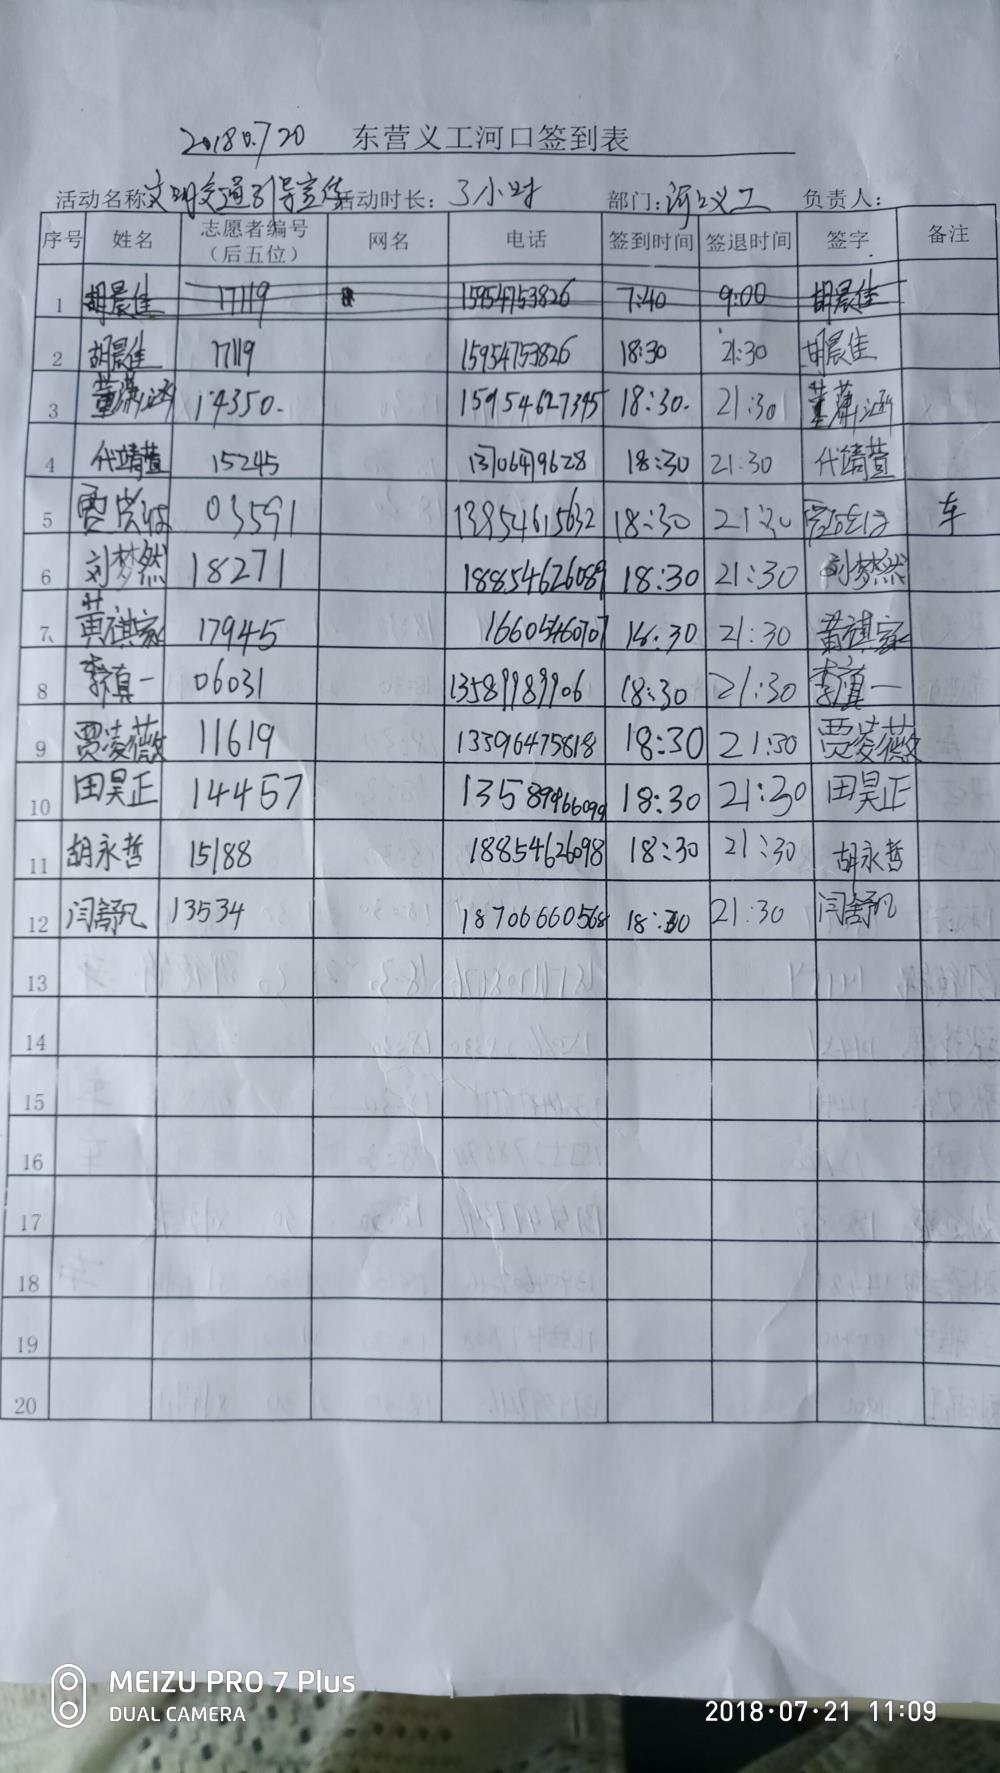 20180.7.20 东营义工河口签到表
活动名称文明交通引导宣传活动时长：3小时 部门：河口义工 负责人：
序号 姓名 志愿者编号（后五位） 网名 电话 签到时间 签退时间 签字 备注
1 胡晨佳 17119 15954753826 7:40 9:00 胡晨佳
2 胡晨佳 17119 15954753826 18:30 21:30 胡晨佳
3 董潇涵 14350. 15954627395 18:30. 21:30 董潇涵
4 代靖萱 15245 13706479628 18:30 21:30 代靖萱
5 03591 13854615632 18:30 21:30 车
6 刘梦然 18271 18854626089 18:30 21:30 刘梦然
7 黄祺家 17945 16605460707 18:30 21:30 黄祺家
8 李真一 06031 13589989906 18:30 21:30 李真一
9 贾凌薇 11619 13396475818 18:30 21:30 贾凌薇
10 田昊正 14457 13589966099 18:30 21:30 田昊正
11 胡永哲 15188 18854626098 18:30 21:30 胡永哲
12 闫舒凡 13534 18706660568 18:30 21:30 闫舒凡
13
14
15
16
17
18
19
20
MEIZU PRO 7 Plus
DUAL CAMERA
2018·07·21 11:09